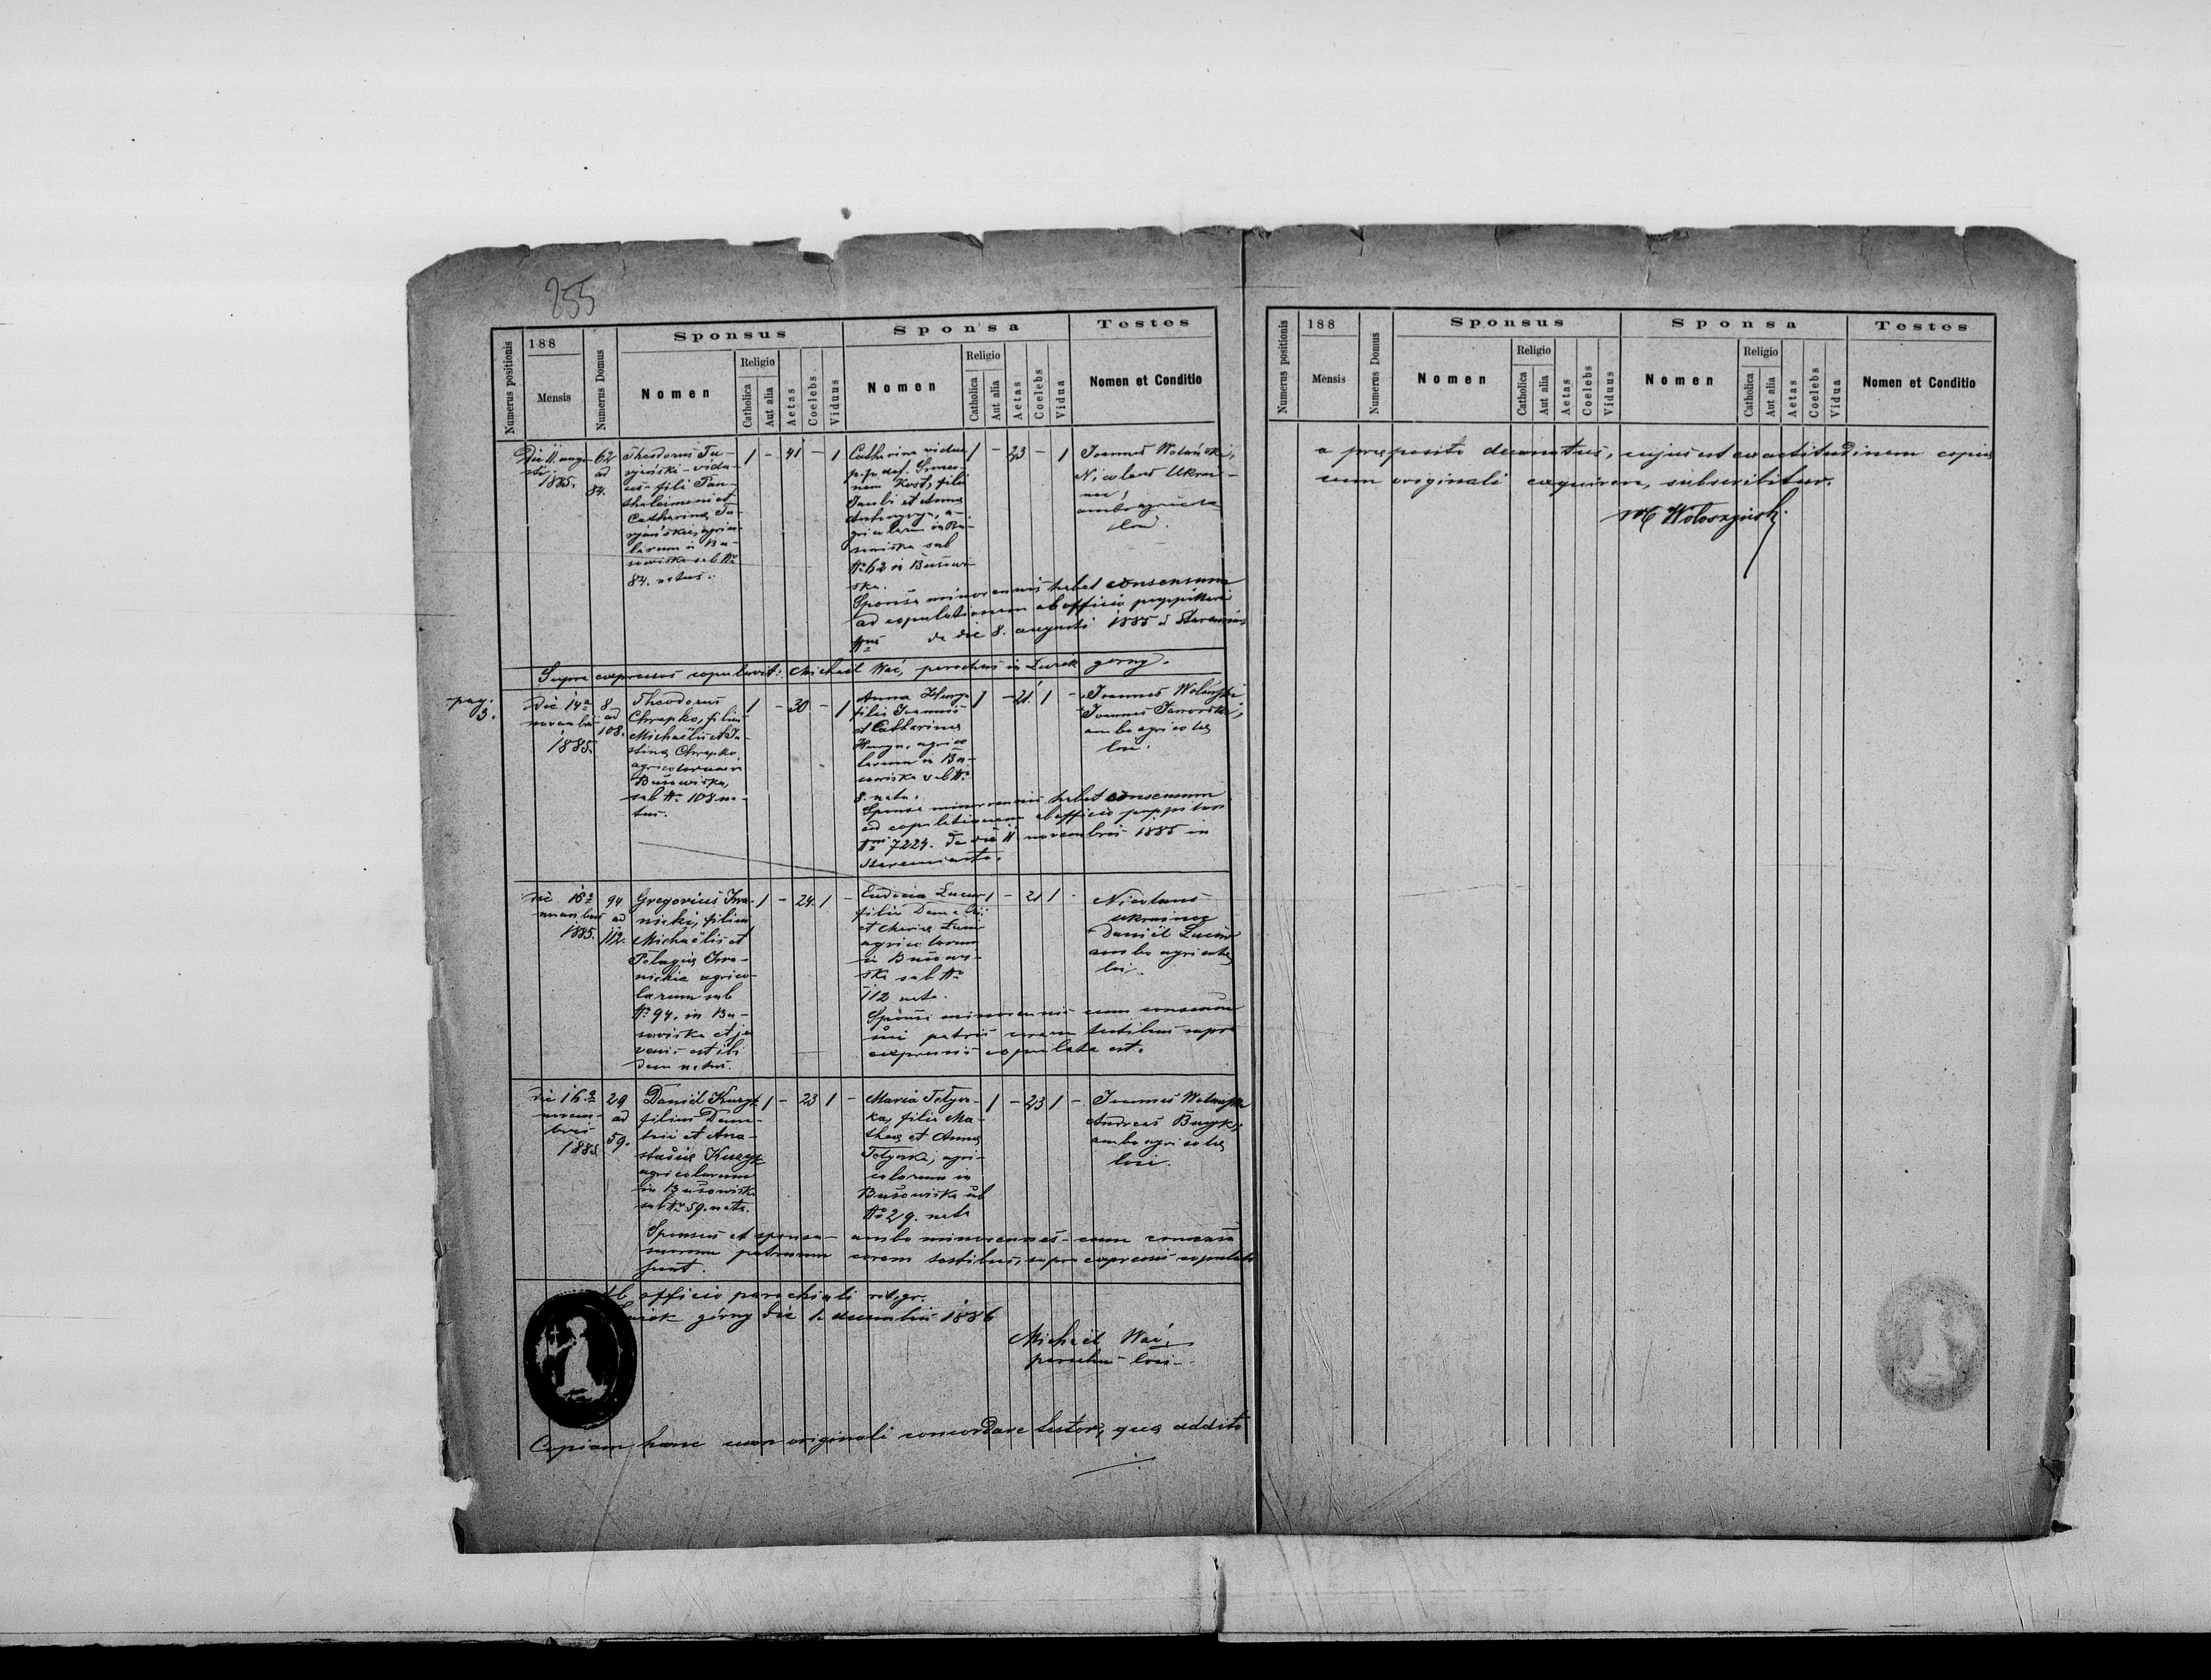 255
188
Numerus positionis
Mensis
Numerus Domus
Sponsus
Nomen
Religio
Catholica
Aut alia
Aetas
Coelebs
Viduus
Sponsa
Nomen
Religio
Catholica
Aut alia
Aetas
Coelebs
Vidua
Testes
Nomen et Conditio
Die 11. augu-
sti
1885.
62
ad
84.
Theodorus
vidu-
us fili Pan-
thaleimoni et
Catharina
agrico-
larum in Bu-
sowiska sub No
84. natus.
1 - 41 - 1
Catharina vidua
p. p. def. Simeo-
nem Kost, filia
Pauli et Anna
a-
gricolarum in Bu-
sowiska sub
No 62 in Busowi-
ska.
1 - 23 - 1
Joannes Wolański,
Nicolaus Ukrai-
nec,
ambo agricolae
loci.
Sponsa minorennis habet consensum
ad copulationem ab officio
de die 8. augusti 1885
Supra expressos copulavit: Michael Wać, parochus in Łużek gorny.
pag.
3.
Die 14a
novembris
1885.
8
ad
108.
Theodorus
Chrapko, filius
Michaëlis et Ju-
stina Chrapko
agricolarum in
Busowiska,
sub No 108 na-
tus.
1 - 30 - 1
Anna
filia Joannis
et Catharina
agrico
larum in Bu-
sowiska sub No
8. nata.
1 - 21. 1 -
Joannes Wolański
Joannes Jaworski,
ambo agricolae
loci.
Sponsa minorennis habet consensum
ad copulationem ab officio
7224. de die 11 novembris 1885 in
Staremiasto.
Die 16a
novembris
1885.
94
ad
112.
Gregorius Iwa-
nicki, filius
Michaëlis et
Pelagia Iwa-
nickie agrico-
larum sub
No 94. in Bu-
sowiska et ju
venis est ibi
dem natus.
1 - 24. 1 -
Eudocia Lucur
filia Demetrii
et Maria Lucur
agricolarum
in Busowi-
ska sub No
112 nata.
1 - 21 1 -
Nicolaus
Ukrainec
Daniël Lucur
ambo agricolae
loci.
Sponsa minorennis cum consensu
sui patris coram testibus supra
expressis copulata est.
Die 16.a
novem-
bris
1885
29
ad
59.
Daniël Kuzyk
filius Deme-
trii et Ana-
stasia Kuzyk
agricolarum
in Busowiska
sub No 59. nata.
1 - 23 1 -
Maria Tetyor-
ka, filia Ma-
thea et Anna
agri-
colarum in
Busowiska sub
No 29. nata
1 - 23 1 -
Joannes Wolański
Andreas
ambo agricolae
loci.
Sponsus et sponsa - ambo minorennes - cum consensu
suorum patrum coram testibus, supra expressis copulati
sunt.
Ab officio parochiali rit. gr.
górny die 1. decembris 1886
Michaël Wać,
parochus loci
Copiam hanc cum originali concordare testor, qua addito
188
Numerus positionis
Mensis
Numerus Domus
Sponsus
Nomen
Religio
Catholica
Aut alia
Aetas
Coelebs
Viduus
Sponsa
Nomen
Religio
Catholica
Aut alia
Aetas
Coelebs
Vidua
Testes
Nomen et Conditio
a praeposito decanatus, cujus est exactitudinem copiae
cum originali exquirere, subscribitur.
M Wołoszyński